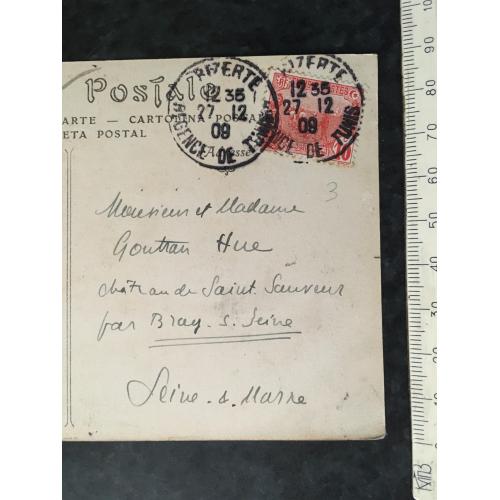 Postale
ARTE — CARTOLINA POSTALE
ETA POSTAL
Adresse
BIZERTE
12 35
27 12
09
REGENCE DE TUNIS
BIZERTE
12 35
27 12
09
REGENCE DE TUNIS
POSTES
10
3
Monsieur et Madame
Gontran Hue
château de Saint Sauveur
par Bray-s-Seine
Seine-&-Marne
100
90
80
70
60
50
40
30
20
10